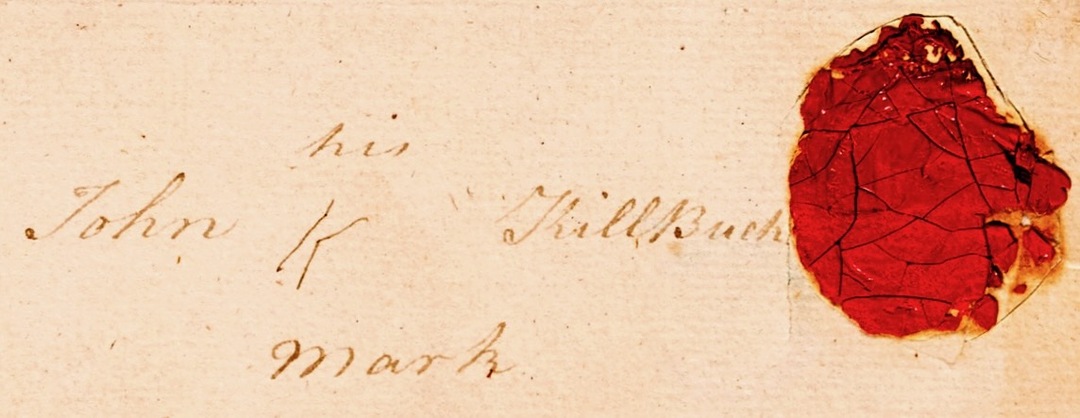 his
John K KillBuck
mark